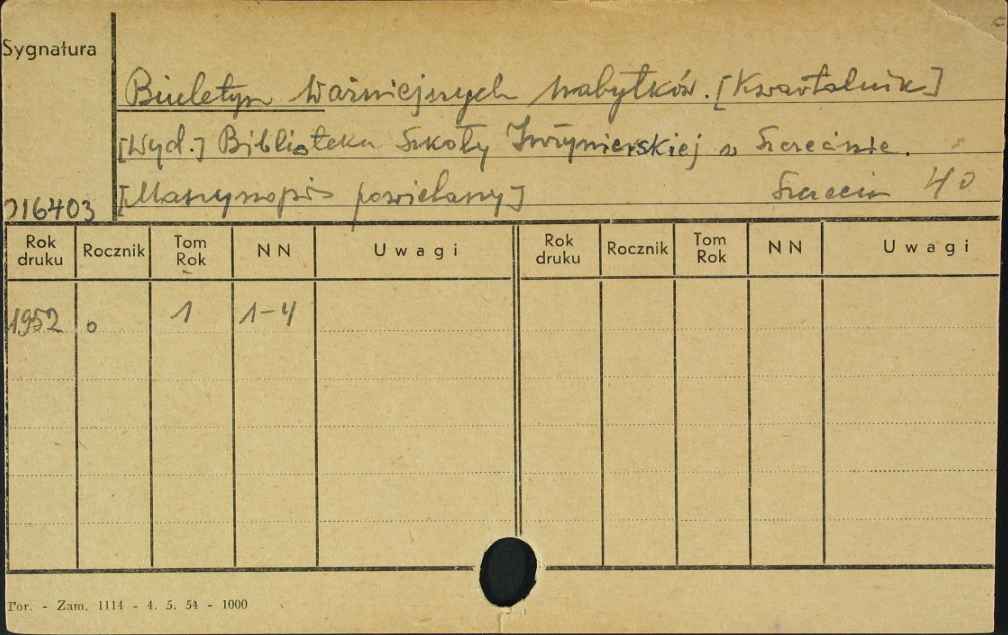 Sygnatura
Biuletyn ważniejszych nabytków. [Kwartalnik]
[Wyd.] Biblioteka Szkoły Inżynierskiej w Szczecinie.
[Maszynopis powielany] Szczecin 4o
016403
Rok druku Rocznik Tom Rok NN Uwagi Rok druku Rocznik Tom Rok NN Uwagi
1952 o 1 1-4
Tor. - Zam. 1114 - 4. 5. 54 - 1000